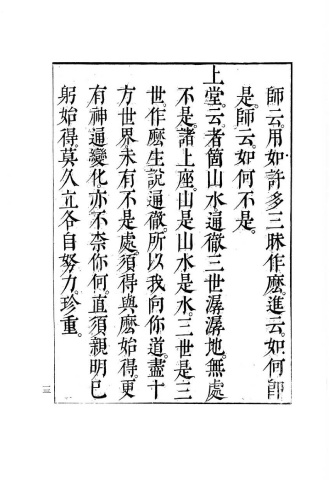 師云。用如許多三昧作麼。進云。如何即
是。師云。如何不是。
上堂。云。者箇山水。通徹三世。潺潺地。無處
不是。諸上座。山是山。水是水。三世是三
世。作麼生說通徹。所以我向你道。盡十
方世界。未有不是處。須得與麼始得。更
有神通變化。亦不柰你何。直須親明已
躬始得。莫久立。各自努力。珍重。
一三